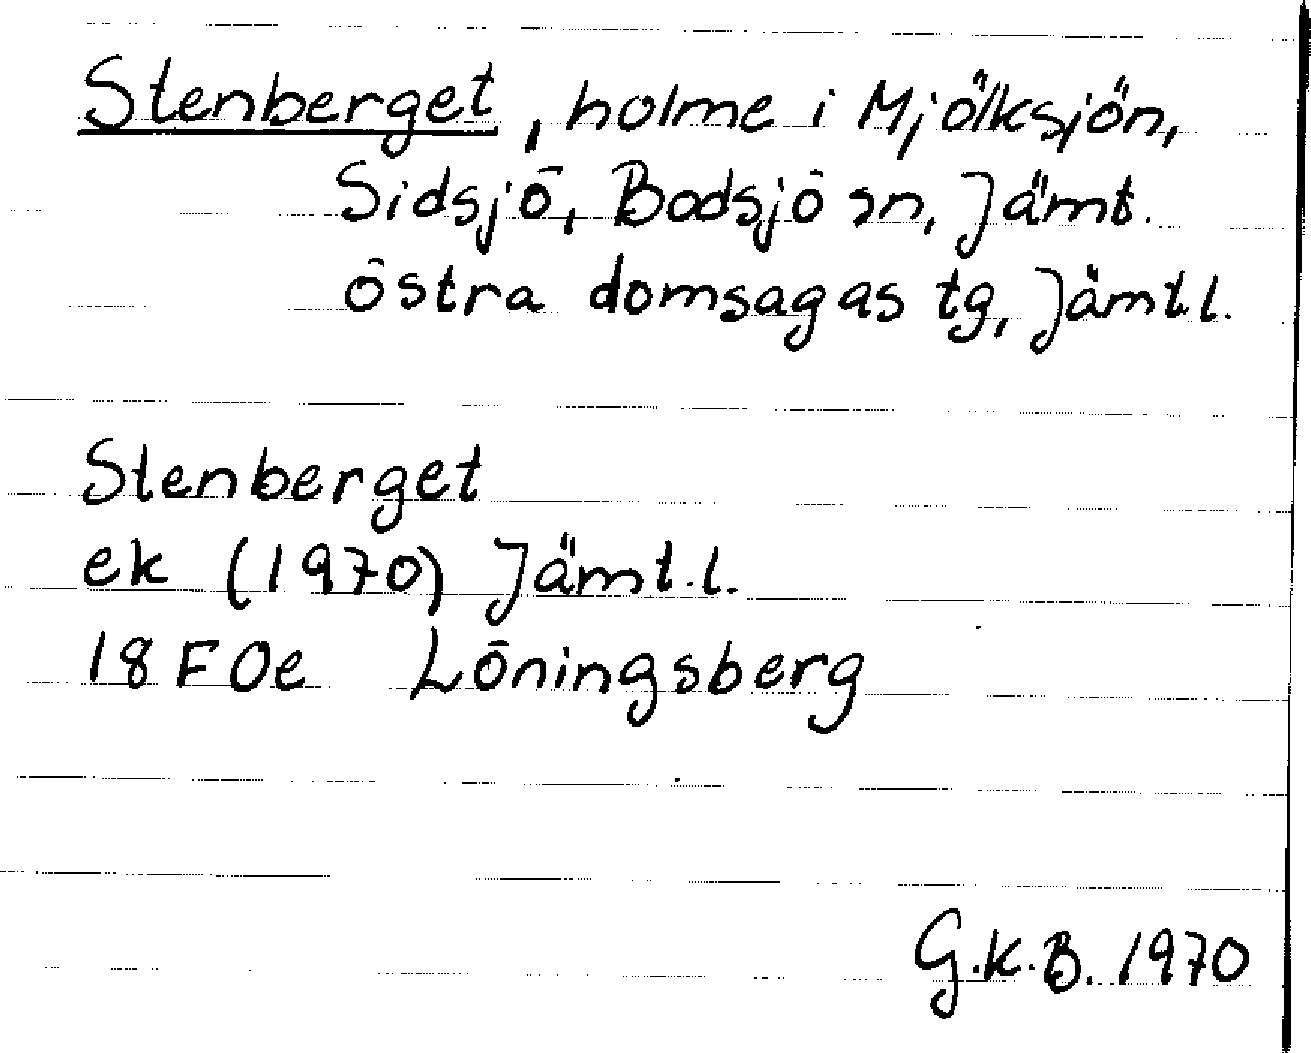 Stenberget, holme i Mjölksjön,
Sidsjö, Bodsjö sn, Jämt.
östra domsagas tg, Jämt.l.
Stenberget
ek (1970) Jämt.l.
18 F 0e Löningsberg
G.K.B. 1970